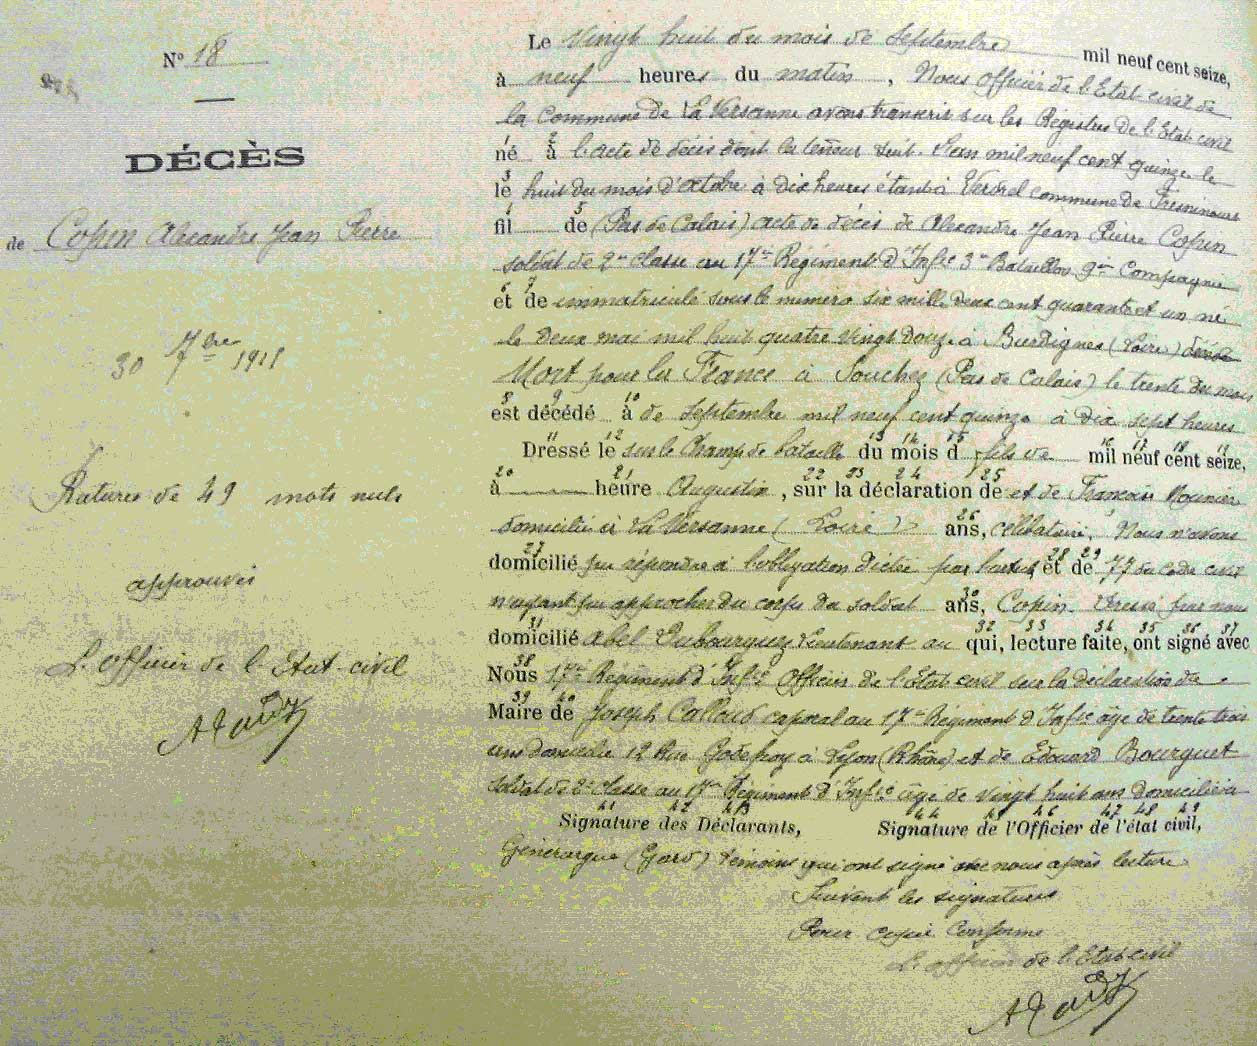 N° 18
DÉCÈS
de Copin Alexandre Jean Pierre
30 7bre 1915
Ratures de 49 mots nuls
approuvés
L'officier de l'Etat-civil
Le Vingt huit du mois de Septembre mil neuf cent seize,
à neuf heures du matin, Nous Officier de l'Etat civil de
la Commune de La Versanne avons transcrit sur les Régistres de l'Etat civil
1 2
né à l'acte de décès dont la teneur suit. L'an mil neuf cent quinze le
3
le huit du mois d'octobre à dix heures étant à commune de
4 5
fil de (Pas de Calais) acte de décès de Alexandre Jean Pierre Copin
soldat de 2me classe au 17me Régiment d'Infie 3me Bataillon 9me Compagnie
6 7
et de immatriculé sous le numéro six mille deux cent quarante et un né
le deux mai mil huit quatre vingt douze à Burdignes (Loire)
Mort pour la France à Souchez (Pas de Calais) le trente du mois
8 9 10
est décédé à de Septembre mil neuf cent quinze à dix sept heures
11 12 13 14 15 16 17 18 19
Dressé le sur le Champ de bataille du mois d fils de mil neuf cent seize,
20 21 22 23 24 25
à heure Augustin, sur la déclaration de et de François Mounier
26
domiciliés à La Versanne (Loire) ans, célibataire, Nous n'avons
27 28 29
domicilié pu répondre à l'obligation par et de 77 du code civil
30
n'ayant pu approcher du corps du soldat ans, Copin. Dressé par nous
31 32 33 34 35 36 37
domicilié Abel Lieutenant au qui, lecture faite, ont signé avec
38
Nous 17me Régiment d'Infie Officier de l'Etat civil sur la déclaration de
39 40
Maire de Joseph Callaud caporal au 17me Régiment d'Infie âgé de trente trois
ans domicilié 12 Rue Godefroy à Lyon (Rhône) et de Edouard Bourguet
soldat de 2e classe au 17me Régiment d'Infie âgé de vingt huit ans domicilié à
41 42 43 44 45 46 47 48 49
Signature des Déclarants, Signature de l'Officier de l'état civil,
Générargues (Gard) témoins qui ont signé avec nous après lecture
Suivent les signatures
Pour copie conforme
L'officier de l'Etat civil